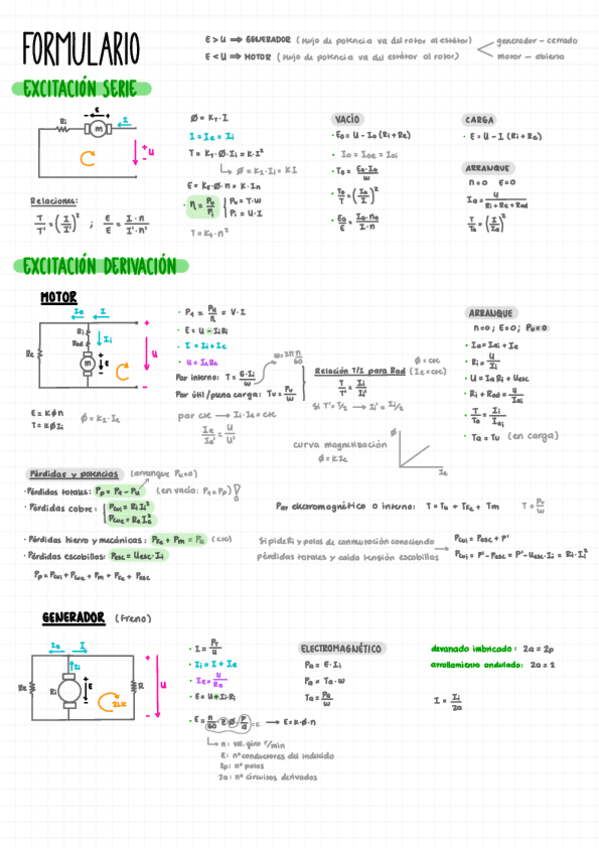 FORMULARIO
E > U ⟹ GENERADOR (flujo de potencia va del rotor al estátor)
E < U ⟹ MOTOR (flujo de potencia va del estátor al rotor)
generador - cerrado
motor - abierto
EXCITACIÓN SERIE
Ri
E
I
m
U
Relaciones:
T/T' = (I/I')² ; E/E' = I·n/I'·n'
Ø = K₁·I
I = Ie = Ii
T = K₁·Ø·Ii = K·I²
Ø = K₂·Ii = KI
E = KE·Ø·n = K·In
η = Pu/Pi
Pu = T·w
Pi = U·I
T = K₁·n²
VACÍO
· E₀ = U - I₀ (Ri+Re)
· I₀ = I₀e = I₀i
· T₀ = E₀·I₀/w
· T₀/T = (I₀/I)²
· E₀/E = I₀·n₀/I·n
CARGA
· E = U - I (Ri+Re)
ARRANQUE
n=0 E=0
Ia = U/Ri+Re+Rad
T/Ta = (I/Ia)²
EXCITACIÓN DERIVACIÓN
MOTOR
Ie I
Ri
Rad
Ii
Re
m
E
U
E = KØn
T = KØIi
Ø = K₂·Ie
· P₁ = Pu/η = V·I
· E = U - IiRi
· I = Ii+Ie
· U = IeRe
Par interno: T = E·Ii/w
w = 2πn/60
Par útil/plena carga: Tu = Pu/w
par cte → Ii·Ie = cte
Ie/Ie' = U/U'
Relación T/I para Rad
Ø = cte
(Ie = cte)
T/T' = Ii/Ii'
Si T' = T/2 → Ii' = Ii/2
curva magnetización
Ø = KIe
Ø
Ie
ARRANQUE
n=0; E=0; Pu=0
· Ia = Iai + Ie
· Ri = U/Ii
· U = IaRi + Uesc
· Ri + Rad = U/Iai
· T/Ta = Ii/Iai
· Ta = Tu (en carga)
Pérdidas y potencias (arranque Pu=0)
· Pérdidas totales: Pp = P₁ - Pu (en vacío: P₁ = Pp)!
· Pérdidas cobre: Pcui = RiIi²
Pcue = ReIe²
Par electromagnético o interno: T = Tu + TFe + Tm
· Pérdidas hierro y mecánicas: PFe + Pm = (cte)
· Pérdidas escobillas: Pesc = Uesc·Ii
Pp = Pcui + Pcue + Pm + PFe + Pesc
Si pide Ri y polos de conmutación conociendo
pérdidas totales y caída tensión escobillas
Pcui = Pesc + P'
Pcui = P' - Pesc = P' - Uesc·Ii = Ri·Ii²
GENERADOR (Freno)
Ie I
Ii
Re
Ri
E
R
U
2LK
· I = /U
· Ii = I + Ie
· Ie = U/Re
· E = U + Ii·Ri
· E = n/60·Z·Ø·p/a → E = K·Ø·n
n: vel. giro r/min
Z: nº conductores del inducido
2p: nº polos
2a: nº circuitos derivados
ELECTROMAGNÉTICO
Pa = E·Ii
Pa = Ta·w
Ta = Pa/w
devanado imbricado: 2a = 2p
arrollamiento ondulado: 2a = 2
I = Ii/2a